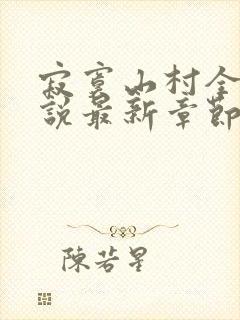 寂寞山村全
說最新章節
陳若星